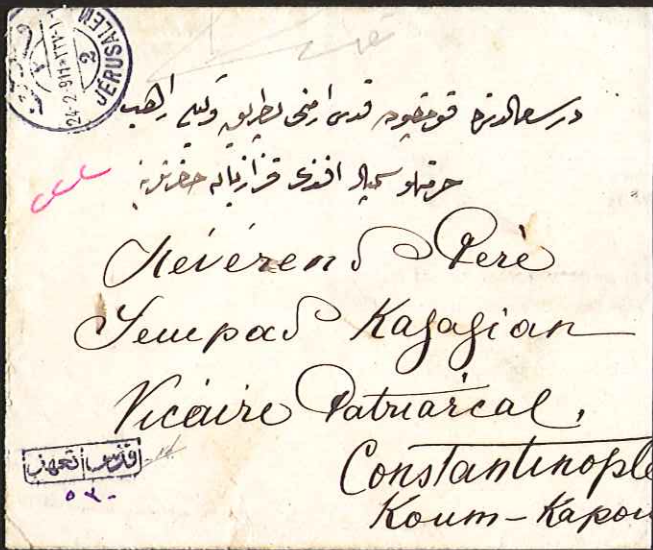 JÉRUSALEM
2
24-2-911
در سعادتده قومقپوده قدس ارمنی بطریق وکیلی راهب
حرمتلو سمپاد افندی قزازیان حضرتلرینه
Révérend Père
Sempad Kazazian
Vicaire Patriarcal,
Constantinople
Koum-Kapou
قدس تعهد